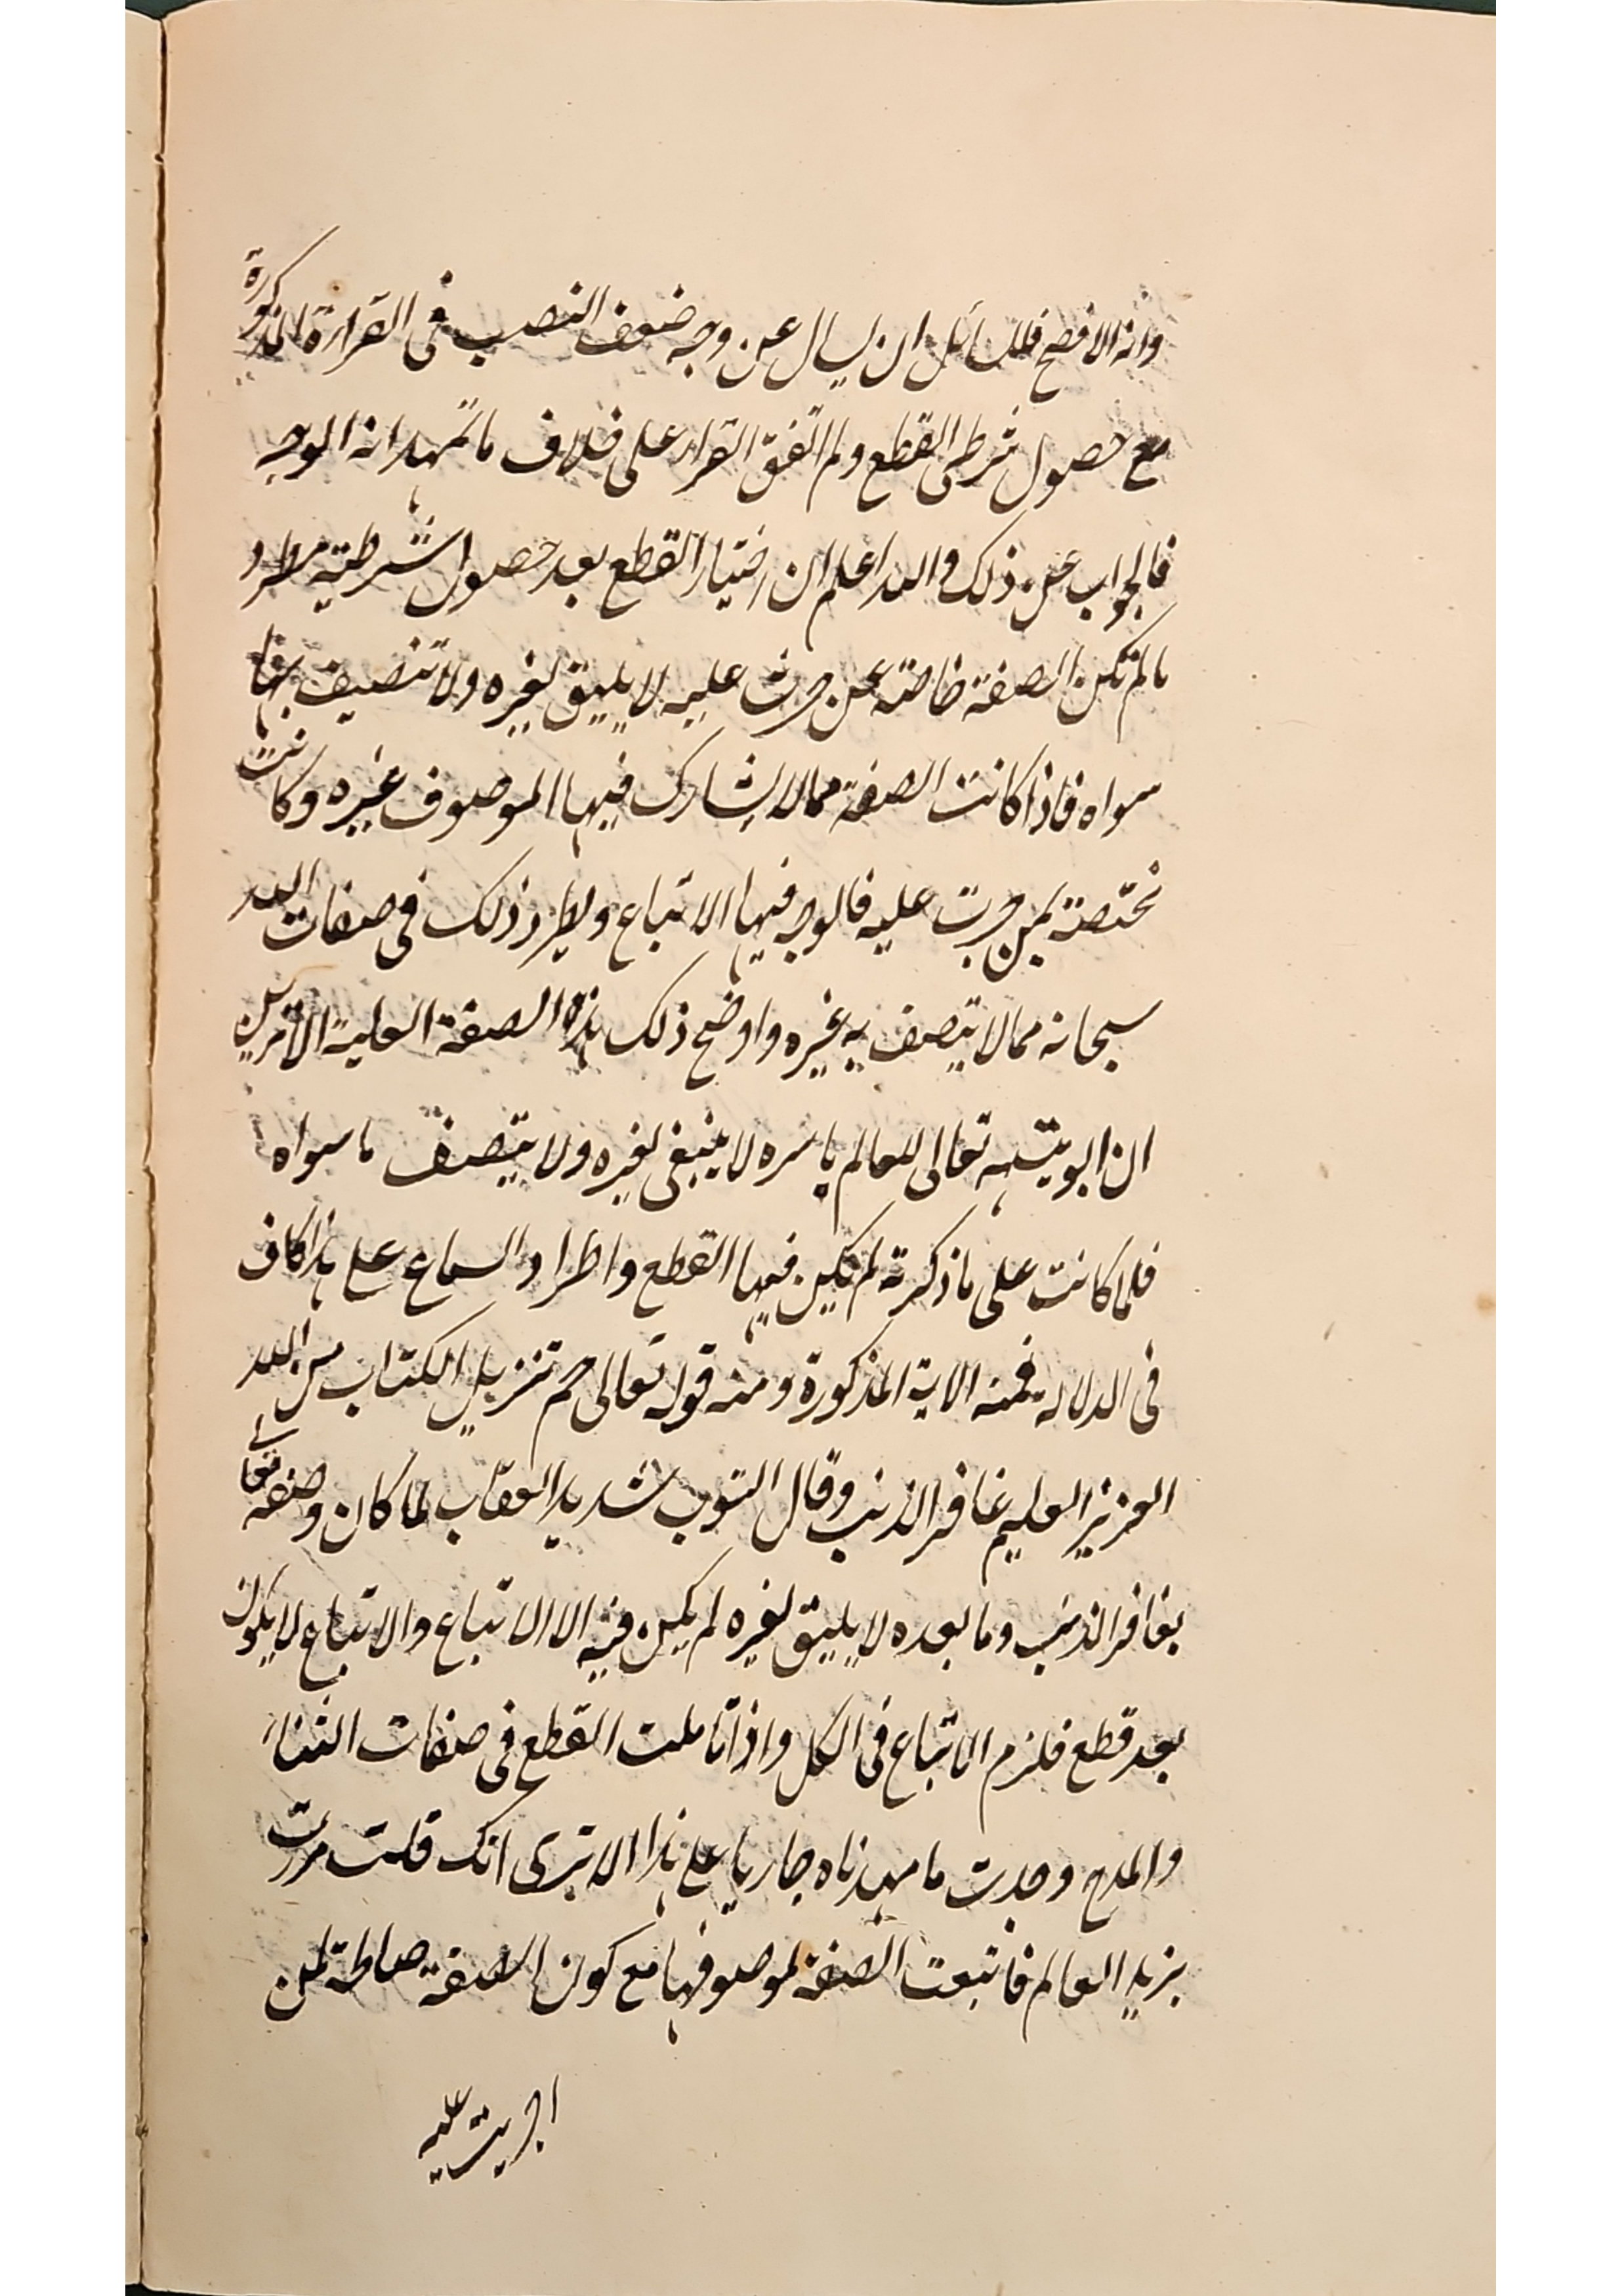 وانه الافصح فللسائل ان يسال عن وجه ضعف النصب فى القراءة المذكورة
مع حصول شرطى القطع ولم اتفق القراء على خلاف ما تمهد انه الوجه
فالجواب عن ذلك والله اعلم ان اختيار القطع بعد حصول شرطيته مطرد
ما لم تكن الصفة خاصة بمن جرت عليه لا يليق لغيره ولا تتصف بها
سواه فاذا كانت الصفة مما لا يشارك فيها الموصوف غيره وكانت
مختصة بمن جرت عليه فالوجه فيها الاتباع ويطرد ذلك فى صفات الله
سبحانه مما لا يتصف به غيره واوضح ذلك هذه الصفة العلية الا ترى
ان ابويته تعالى للعالم باسره لا ينبغى لغيره ولا يتصف ما سواه
فلما كانت على ما ذكرته لم يكن فيها القطع واطراد السماع على هذا كاف
فى الدلاله فمنه الاية المذكورة ومنه قوله تعالى حم تنزيل الكتاب من الله
العزيز العليم غافر الذنب وقال التوب شديد العقاب لما كان وصفه تعالى
بغافر الذنب وما بعده لا يليق لغيره لم يكن فيه الا الاتباع والاتباع لا يكون
بعد قطع فلزم الاتباع فى الكل واذا تاملت القطع فى صفات الثناء
والمدح وجدت ما مهدناه جاريا على هذا الا ترى انك قلت مررت
بزيد العالم فاتبعت الصفة لموصوفها مع كون الصفة صالحة لمن
اجريت عليه